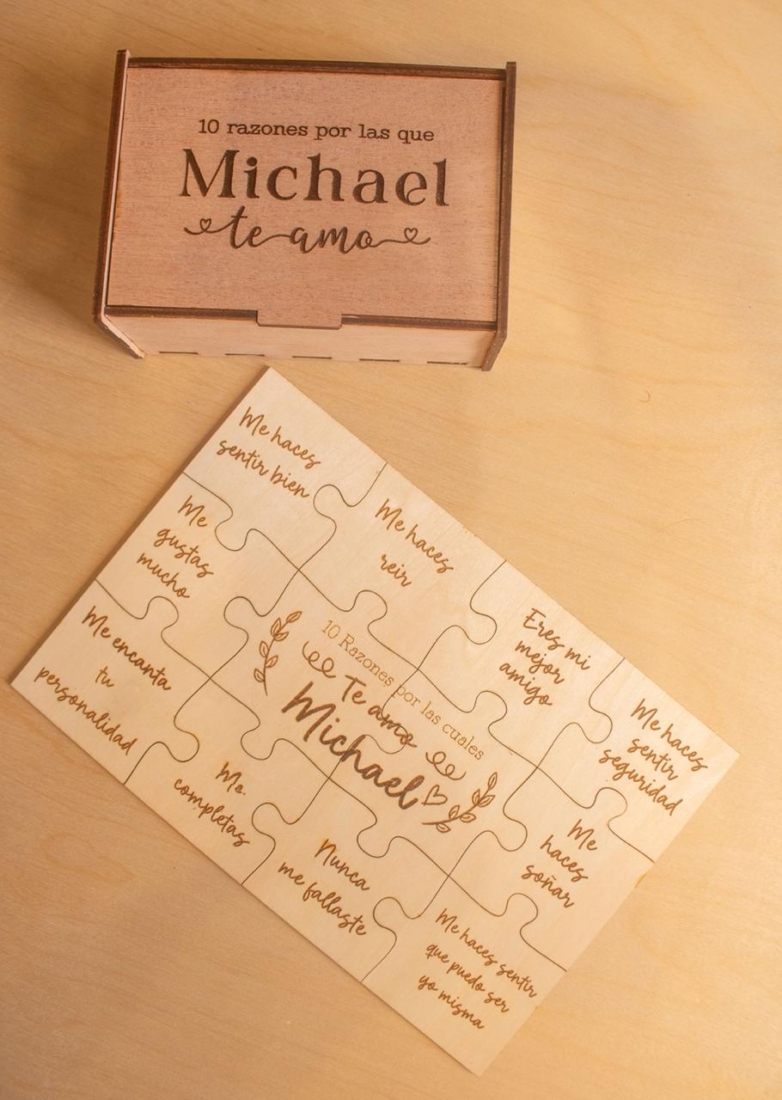 10 razones por las que
Michael
te amo
Me haces
sentir bien
Me haces
reir
Eres mi
mejor
amigo
Me haces
sentir
seguridad
Me
gustas
mucho
10 Razones por las cuales
Te amo
Michael
Me
haces
soñar
Me encanta
tu
personalidad
Me
completas
Nunca
me fallaste
Me haces sentir
que puedo ser
yo misma